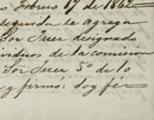 Febrero 17 de 1862
seguida se agrega
Sor Juez designado
ividuos de la comision
Sor Juez 5º de lo
y firmó: doy fé